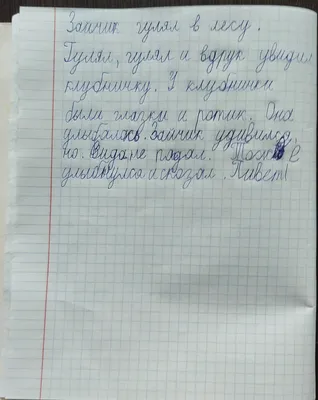 Зайчик гулял в лесу.
Гулял, гулял и вдрук увидил
клубничку. У клубники
были глазки и ротик. Она
улыбалась. Зайчик удивился,
но. Вида не подал. Тоже
улыбнулса и сказал. Пивет!